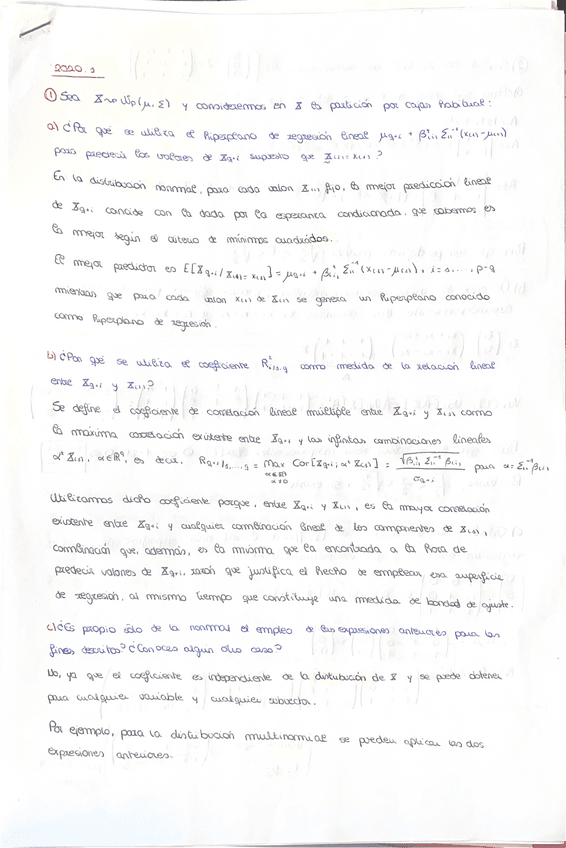 2020.1
① Sea X~Np(μ, Σ) y consideremos en X la partición por cajas habitual:
a) ¿Por qué se utiliza el hiperplano de regresión lineal μq+i + β'i,1 Σ11⁻¹ (x(1)-μ(1))
para predecir los valores de Xq+i supuesto que X(1)=x(1)?
En la distribución normal, para cada valor X(1) fijo, la mejor predicción lineal
de Xq+i coincide con la dada por la esperanza condicionada, que sabemos es
la mejor según el criterio de mínimos cuadrados.
El mejor predictor es E[Xq+i / X(1)=x(1)] = μq+i + β'i,1 Σ11⁻¹ (x(1)-μ(1)), i=1,..., p-q
mientras que para cada valor x(1) de X(1) se genera un hiperplano conocido
como hiperplano de regresión.
b) ¿Por qué se utiliza el coeficiente R² como medida de la relación lineal
entre Xq+i y X(1)?
Se define el coeficiente de correlación lineal múltiple entre Xq+i y X(1) como
la máxima correlación existente entre Xq+i y las infinitas combinaciones lineales
α' X(1), α∈ℝq, es decir, Rq+i|1,...,q = max Cor[Xq+i, α' X(1)] = √(β'i,1 Σ11⁻¹ βi,1) / σq+i para α=Σ11⁻¹ βi,1
α∈ℝq
α≠0
Utilizamos dicho coeficiente porque, entre Xq+i y X(1), es la mayor correlación
existente entre Xq+i y cualquier combinación lineal de los componentes de X(1),
combinación que, además, es la misma que la encontrada a la hora de
predecir valores de Xq+i, razón que justifica el hecho de emplear esa superficie
de regresión, al mismo tiempo que constituye una medida de bondad de ajuste.
c) ¿Es propio sólo de la normal el empleo de las expresiones anteriores para los
fines descritos? ¿Conoces algún otro caso?
No, ya que el coeficiente es independiente de la distribución de X y se puede obtener
para cualquier variable y cualquier subvector.
Por ejemplo, para la distribución multinomial se pueden aplicar las dos
expresiones anteriores.